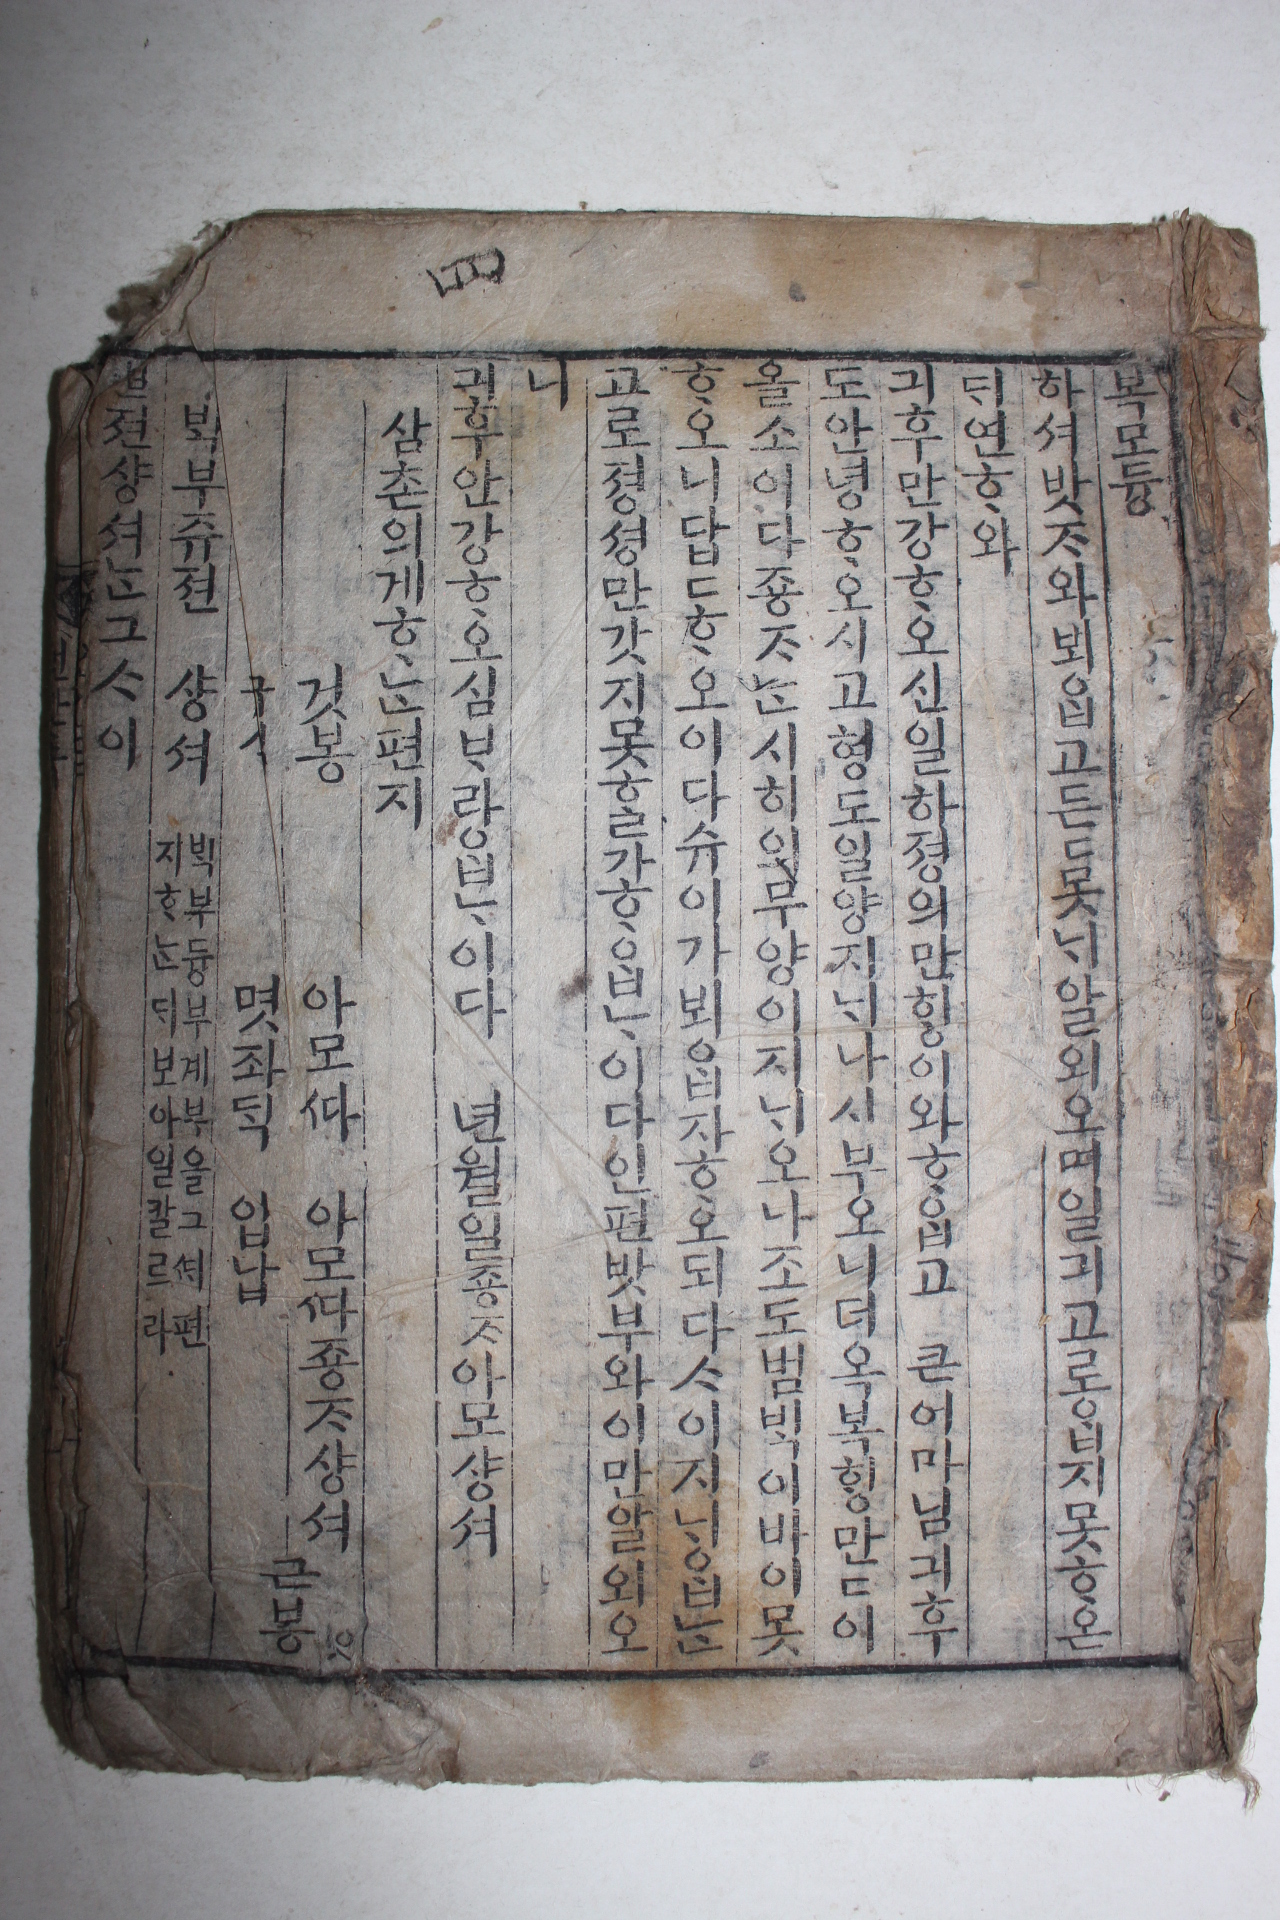 복모듕
하셔밧ᄌᆞ와뵈ᄋᆞᆸ고든든못ᄂᆡ알외오며일긔고로ᄋᆞᆸ지못ᄒᆞ온
ᄃᆡ연ᄒᆞ와
긔후만강ᄒᆞ오신일하졍의만ᄒᆡᆼ이와ᄒᆞᄋᆞᆸ고 큰어마님긔후
도안녕ᄒᆞ오시고형도일양지ᄂᆡ나시부오니더옥복ᄒᆡᆼ만드이
올소이다죵ᄌᆞᄂᆞᆫ시하의무양이지ᄂᆡ오나조도범ᄇᆡᆨ이마이못
ᄒᆞ오니답듭ᄒᆞ오이다슈이가뵈ᄋᆞᆸ쟈ᄒᆞ오되다ᄉᆞ이지ᄂᆡᄋᆞᆸᄂᆞᆫ
고로졍셩만갓지못ᄒᆞᆯ가ᄒᆞᄋᆞᆸᄂᆞ이다인편밧부와이만알외오
니
긔후안강ᄒᆞ오심ᄇᆞ라ᄋᆞᆸᄂᆞ이다 년월일죵ᄌᆞ아모샹셔
삼촌의게ᄒᆞᄂᆞᆫ편지
것봉 아모ᄯᅡ 아모ᄯᅡ죵ᄌᆞ샹셔
몃좌ᄃᆡᆨ 입납 근봉
ᄇᆡᆨ부쥬젼 샹셔 ᄇᆡᆨ부듕부계부을그셔편
지ᄒᆞᄂᆞᆫᄃᆡ보아일칼르라
젼샹셔ᄂᆞᆫ그ᄉᆞ이